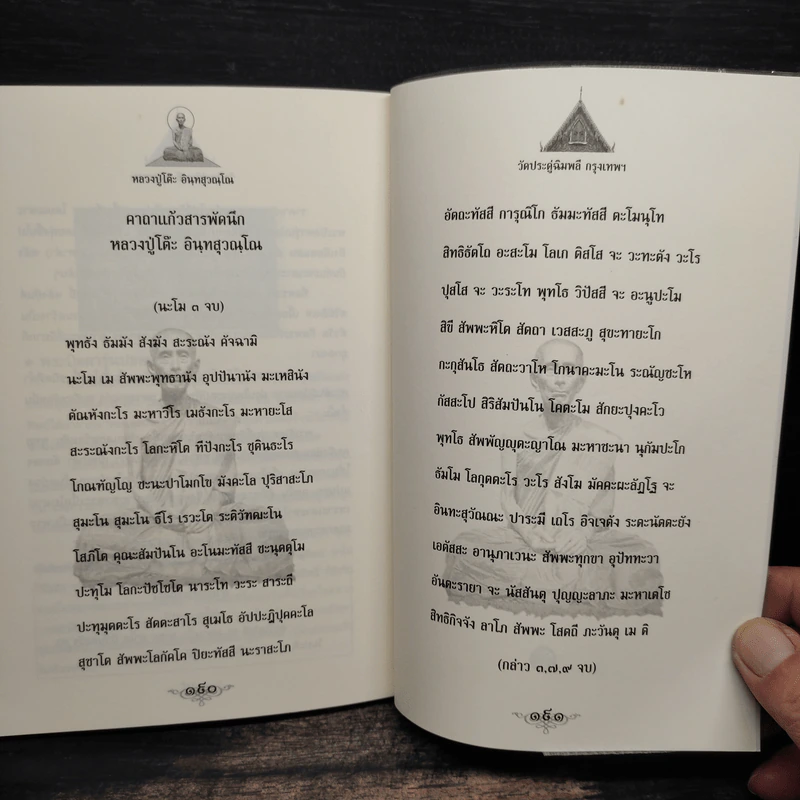 หลวงปู่โต๊ะ อินฺทสุวณฺโณ
คาถาแก้วสารพัดนึก
หลวงปู่โต๊ะ อินฺทสุวณฺโณ
(นะโม ๓ จบ)
พุทธัง ธัมมัง สังฆัง สะระณัง คัจฉามิ
นะโม เม สัพพะพุทธานัง อุปปันานัง มะเหสินัง
ตัณหังกะโร มะหาวีโร เมธังกะโร มะหายะโส
สะระณังกะโร โลกะหิโต ทีปังกะโร ชุตินธะโร
โกณฑัญโญ ชะนะปาโมกโข มังคะโล ปุริสาสะโภ
สุมะโน สุมะโน ธีโร เรวะโต ระติวัฑฒะโน
โสภีโต คุณะสัมปันโน อะโนมะทัสสี ชะนุตตุโม
ปะทุโม โลกะปัชโชโต นาระโท วะระ สาระถี
ปะทุมุตตะโร สัตตะสาโร สุเมโธ อัปปะฏิปุคคะโล
สุชาโต สัพพะโลกัคโค ปิยะทัสสี นะราสะโภ
๑๕๐
วัดประดู่ฉิมพลี กรุงเทพฯ
อัตถะทัสสี การุณีโก ธัมมะทัสสี ตะโมนุโท
สิทธิธัตโถ อะสะโม โลเก ติสโส จะ วะทะตัง วะโร
ปุสโส จะ วะระโท พุทโธ วิปัสสี จะ อะนูปะโม
สิขี สัพพะหิโต สัตถา เวสสะภู สุขะทายะโก
กะกุสันโธ สัตถะวาโห โกนาคะมะโน ระณัญชะโห
กัสสะโป สิริสัมปันโน โคตะโม สักยะปุงคะโว
พุทโธ สัพพัญญุตะญาโณ มะหาชะนา นุกัมปะโก
ธัมโม โลกุตตะโร วะโร สังโฆ มัคคะผะลัฏโฐ จะ
อินทะสุวัณณะ ปาระมี เถโร อิจเจตัง ระตะนัตตะยัง
เอตัสสะ อานุภาเวนะ สัพพะทุกขา อุปัททะวา
อันตะรายา จะ นัสสันตุ ปุญญะลาภะ มะหาเตโช
สิทธิกิจจัง ลาโภ สัพพะ โสตถี ภะวันตุ เม ติ
(กล่าว ๓,๗,๙ จบ)
๑๕๑